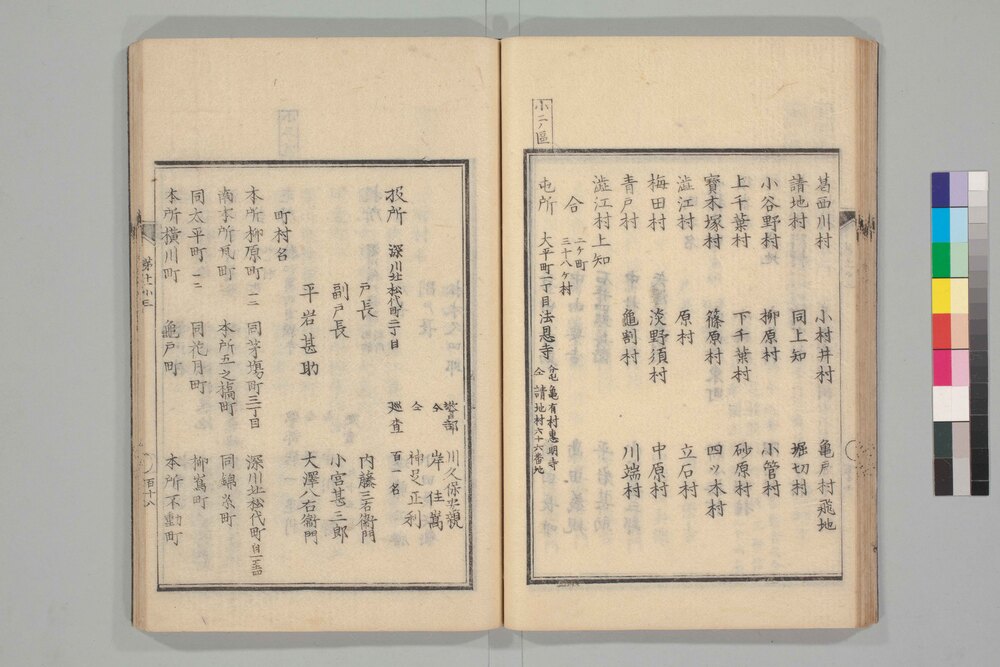 小二ノ區
葛西川村　小村井村　亀戸村飛地
請地村　同上知　堀切村
小谷野村　柳原村　小菅村
上千葉村　下千葉村　砂原村
寶木塚村　篠原村　四ツ木村
澁江村　原村　立石村
梅田村　淡野須村　中原村
青戸村　亀割村　川端村
澁江村上知
合　二ケ町
三十八ケ村
屯所　大平町一丁目法恩寺　分屯　亀有村惠明寺
仝　請地村六十六番地
扱所　深川北松代町二丁目
警部　川久保
仝　岸　住嵩
仝　神足正利
廵査　百一名
戸長　内藤三右衞門
副戸長　小宮甚三郎
平岩甚助　大澤八右衞門
町村名
本所柳原町一二　同茅塲町三丁目　深川北松代町自一至四
南本所瓦町　本所五之橋町　同錦糸町
同太平町一二　同花月町　柳嶌町
本所横川町　亀戸町　本所不動町